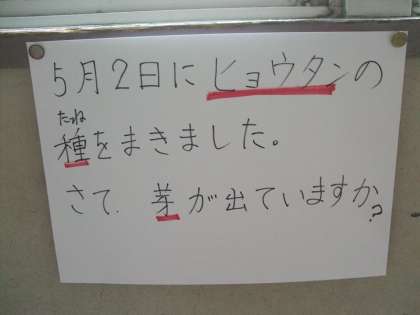 5月2日にヒョウタンの
たね
種をまきました。
さて、芽が出ていますか?